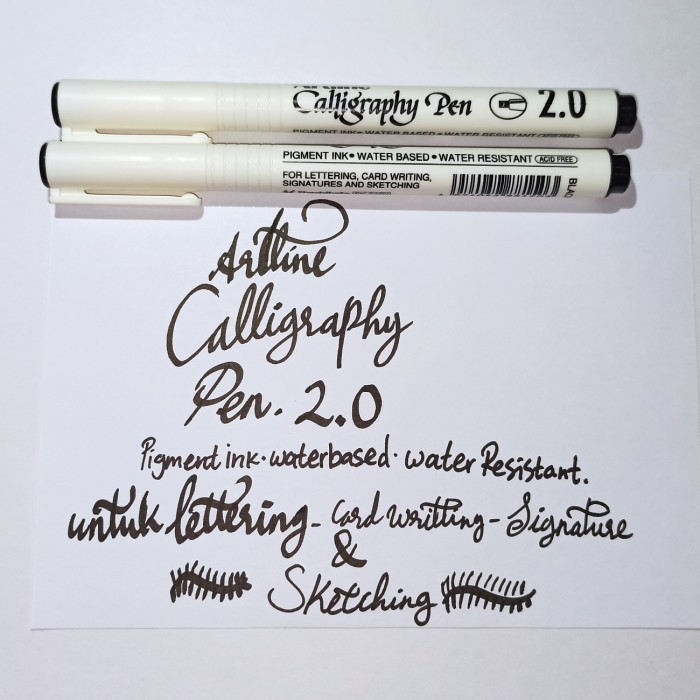 Artline
Calligraphy Pen 2.0
PIGMENT INK • WATER BASED • WATER RESISTANT ACID FREE
PIGMENT INK • WATER BASED • WATER RESISTANT ACID FREE
FOR LETTERING, CARD WRITING,
SIGNATURES AND SKETCHING
Artline
Calligraphy
Pen. 2.0
Pigment ink. waterbased. water Resistant.
untuk lettering - Card writting - Signature
&
Sketching